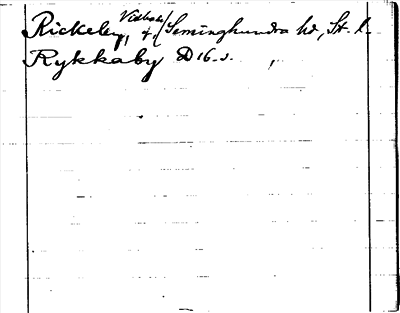 Rickeby, Vidbo s/n, Seminghundra hd, St. l.
Rykkaby D 16. s.